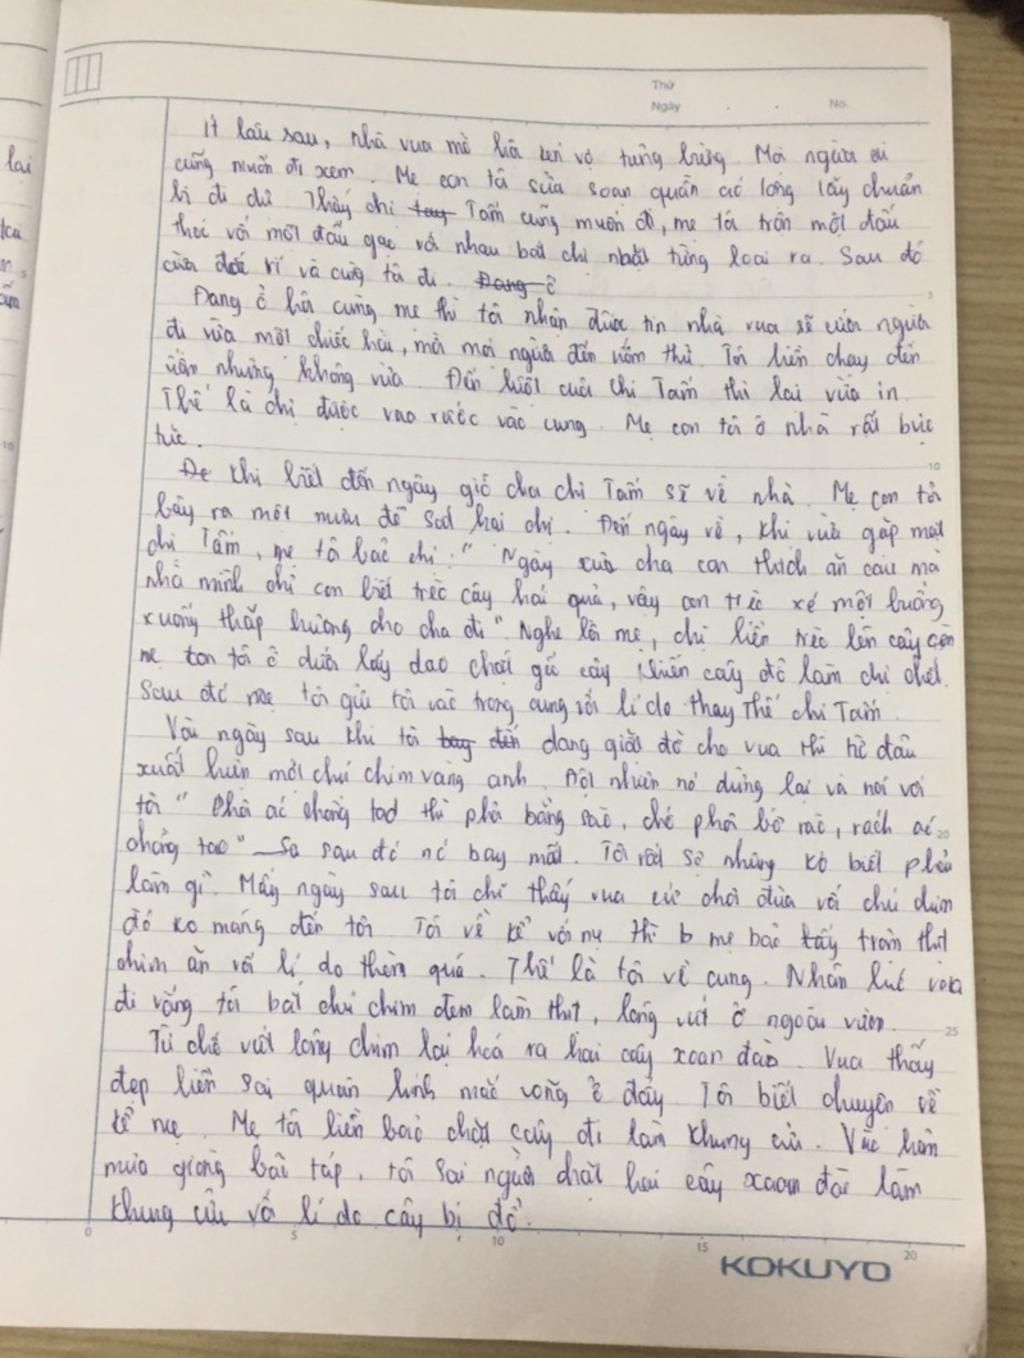 Thứ
Ngày . . No.
Ít lâu sau, nhà vua mở hội kén vợ tưng bừng. Mọi người ai
cũng muốn đi xem. Mẹ con tôi sửa soạn quần áo lộng lẫy chuẩn
bị đi dự. Thấy chị tay Tấm cũng muốn đi, mẹ tôi trộn một đấu
thóc với một đấu gạo với nhau bắt chị nhặt từng loại ra. Sau đó
và cùng tôi đi. Đang ở
Đang ở hội cùng mẹ thì tôi nhận được tin nhà vua sẽ cưới người
đi vừa một chiếc hài, mời mọi người đến thử. Tôi liền chạy đến
nhưng không vừa. Đến lượt của chị Tấm thì lại vừa in.
Thế là chị được vua rước vào cung. Mẹ con tôi ở nhà rất bực
tức.
Để khi biết đến ngày giỗ cha chị Tấm sẽ về nhà. Mẹ con tôi
bày ra một mưu để sát hại chị. Đến ngày về, khi vừa gặp mặt
chị Tấm, mẹ tôi bảo chị: "Ngày xưa cha con thích ăn cau mà
nhà mình chỉ con biết trèo cây hái quả, vậy con trèo xé một buồng
xuống thắp hương cho cha đi". Nghe lời mẹ, chị liền trèo lên cây còn
mẹ con tôi ở dưới lấy dao chặt gốc cây khiến cây đổ làm chị chết.
Sau đó mẹ tôi gửi tôi vào trong cung với lí do thay thế chị Tấm.
Vài ngày sau khi tôi bay đến đang giặt đồ cho vua thì từ đâu
xuất hiện một chú chim vàng anh. Đột nhiên nó dừng lại và nói với
tôi "Phơi áo chồng tao thì phơi bằng sào, chớ phơi bờ rào, rách áo
chồng tao" Sa sau đó nó bay mất. Tôi rất sợ nhưng ko biết phải
làm gì. Mấy ngày sau tôi chỉ thấy vua cứ chơi đùa với chú chim
đó ko màng đến tôi. Tôi về kể với mẹ thì b mẹ bảo lấy trộm thịt
chim ăn với lí do thèm quá. Thế là tôi về cung. Nhân lúc vua
đi vắng tôi bắt chú chim đem làm thịt, lông vứt ở ngoài vườn.
Từ chỗ vứt lông chim lại hoá ra hai cây xoan đào. Vua thấy
đẹp liền sai quân lính mắc võng ở đấy. Tôi biết chuyện về
kể mẹ. Mẹ tôi liền bảo chặt cây đi làm khung cửi. Vào hôm
mưa giông bão táp, tôi sai người chặt hai cây xoan đào làm
khung cửi với lí do cây bị đổ.
0 5 10 15 20
KOKUYO